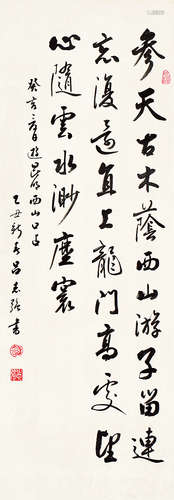 參天古木蔭西山游子畱連
忘復還直上龍門高處望
心隨雲水渺塵寰
癸亥春日遊昆明西山口占
乙丑 呂志强書